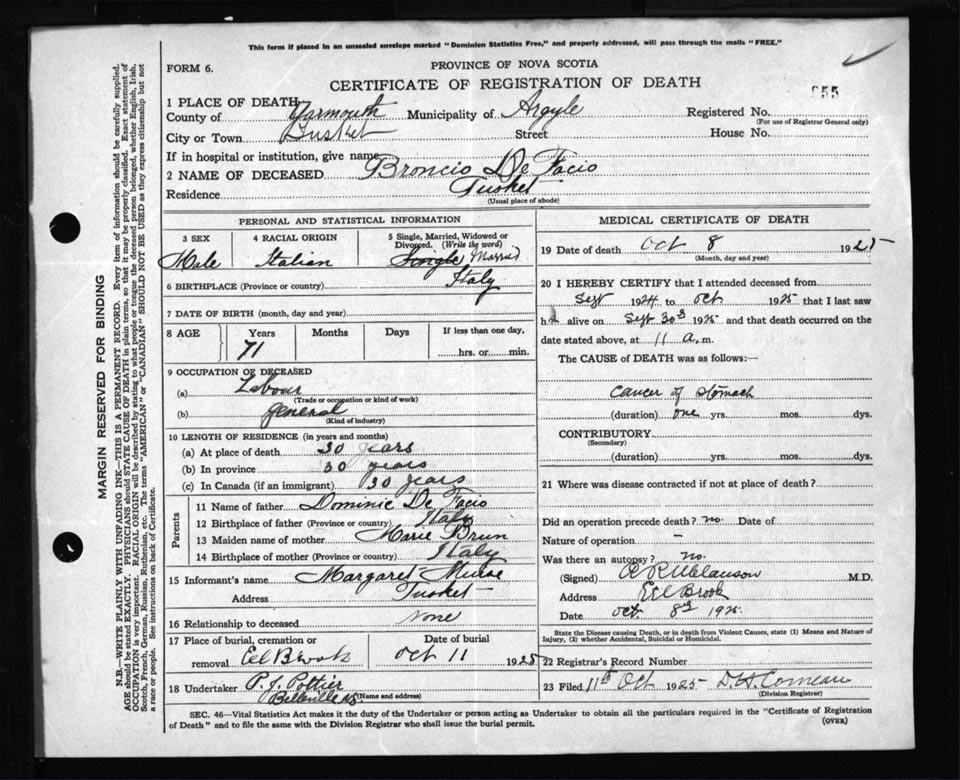 This form if placed in an unsealed envelope marked "Dominion Statistics Free," and properly addressed, will pass through the mails "FREE."
FORM 6.
PROVINCE OF NOVA SCOTIA
CERTIFICATE OF REGISTRATION OF DEATH
655
1 PLACE OF DEATH
County of Yarmouth Municipality of Argyle Registered No.
(For use of Registrar General only)
City or Town Tusket Street House No.
If in hospital or institution, give name
2 NAME OF DECEASED Broncio De Facio
Residence Tusket
(Usual place of abode)
PERSONAL AND STATISTICAL INFORMATION
3 SEX 4 RACIAL ORIGIN 5 Single, Married, Widowed or Divorced. (Write the word)
Male Italian Single Married
6 BIRTHPLACE (Province or country) Italy
7 DATE OF BIRTH (month, day and year)
8 AGE Years Months Days If less than one day,
71 hrs. or min.
9 OCCUPATION OF DECEASED
(a) Labour
(Trade or occupation or kind of work)
(b) General
(Kind of industry)
10 LENGTH OF RESIDENCE (in years and months)
(a) At place of death 30 years
(b) In province 30 years
(c) In Canada (if an immigrant) 30 years
Parents
11 Name of father Dominic De Facio
12 Birthplace of father (Province or country) Italy
13 Maiden name of mother Marie Brun
14 Birthplace of mother (Province or Country) Italy
15 Informant's name Margaret Muise
Address Tusket
16 Relationship to deceased None
17 Place of burial, cremation or removal Eel Brook Date of burial Oct 11 1925
18 Undertaker P. J. Pottier
Belleville NS
(Name and address)
MEDICAL CERTIFICATE OF DEATH
19 Date of death Oct 8 1925
(Month, day and year)
20 I HEREBY CERTIFY that I attended deceased from
Sept 1924 to Oct 1925 that I last saw
h alive on Sept 30 1925 and that death occurred on the
date stated above, at 11 a.m.
The CAUSE of DEATH was as follows:—
Cancer of Stomach
(duration) one yrs. mos. dys.
CONTRIBUTORY
(Secondary)
(duration) yrs. mos. dys.
21 Where was disease contracted if not at place of death?
Did an operation precede death? no. Date of
Nature of operation –
Was there an autopsy? no.
(Signed) M.D.
Address Eel Brook
Date Oct. 8th 1925
State the Disease causing Death, or in death from Violent Causes, state (1) Means and Nature of Injury, (2) whether Accidental, Suicidal or Homicidal.
22 Registrar's Record Number
23 Filed 11th Oct 1925 D.H. Comeau
(Division Registrar)
SEC. 46—Vital Statistics Act makes it the duty of the Undertaker or person acting as Undertaker to obtain all the particulars required in the "Certificate of Registration
of Death" and to file the same with the Division Registrar who shall issue the burial permit.
(OVER)
MARGIN RESERVED FOR BINDING
N.B.—WRITE PLAINLY WITH UNFADING INK—THIS IS A PERMANENT RECORD. Every item of information should be carefully supplied.
AGE should be stated EXACTLY. PHYSICIANS should STATE CAUSE OF DEATH in plain terms, so that it may be properly classified. Exact statement of
OCCUPATION is very important. RACIAL ORIGIN will be described by stating to what people or tongue the deceased person belonged, whether English, Irish,
Scotch, French, German, Russian, Ruthenian, etc. The terms "AMERICAN" or "CANADIAN" SHOULD NOT BE USED as they express citizenship but not
a race or people. See instructions on back of Certificate.